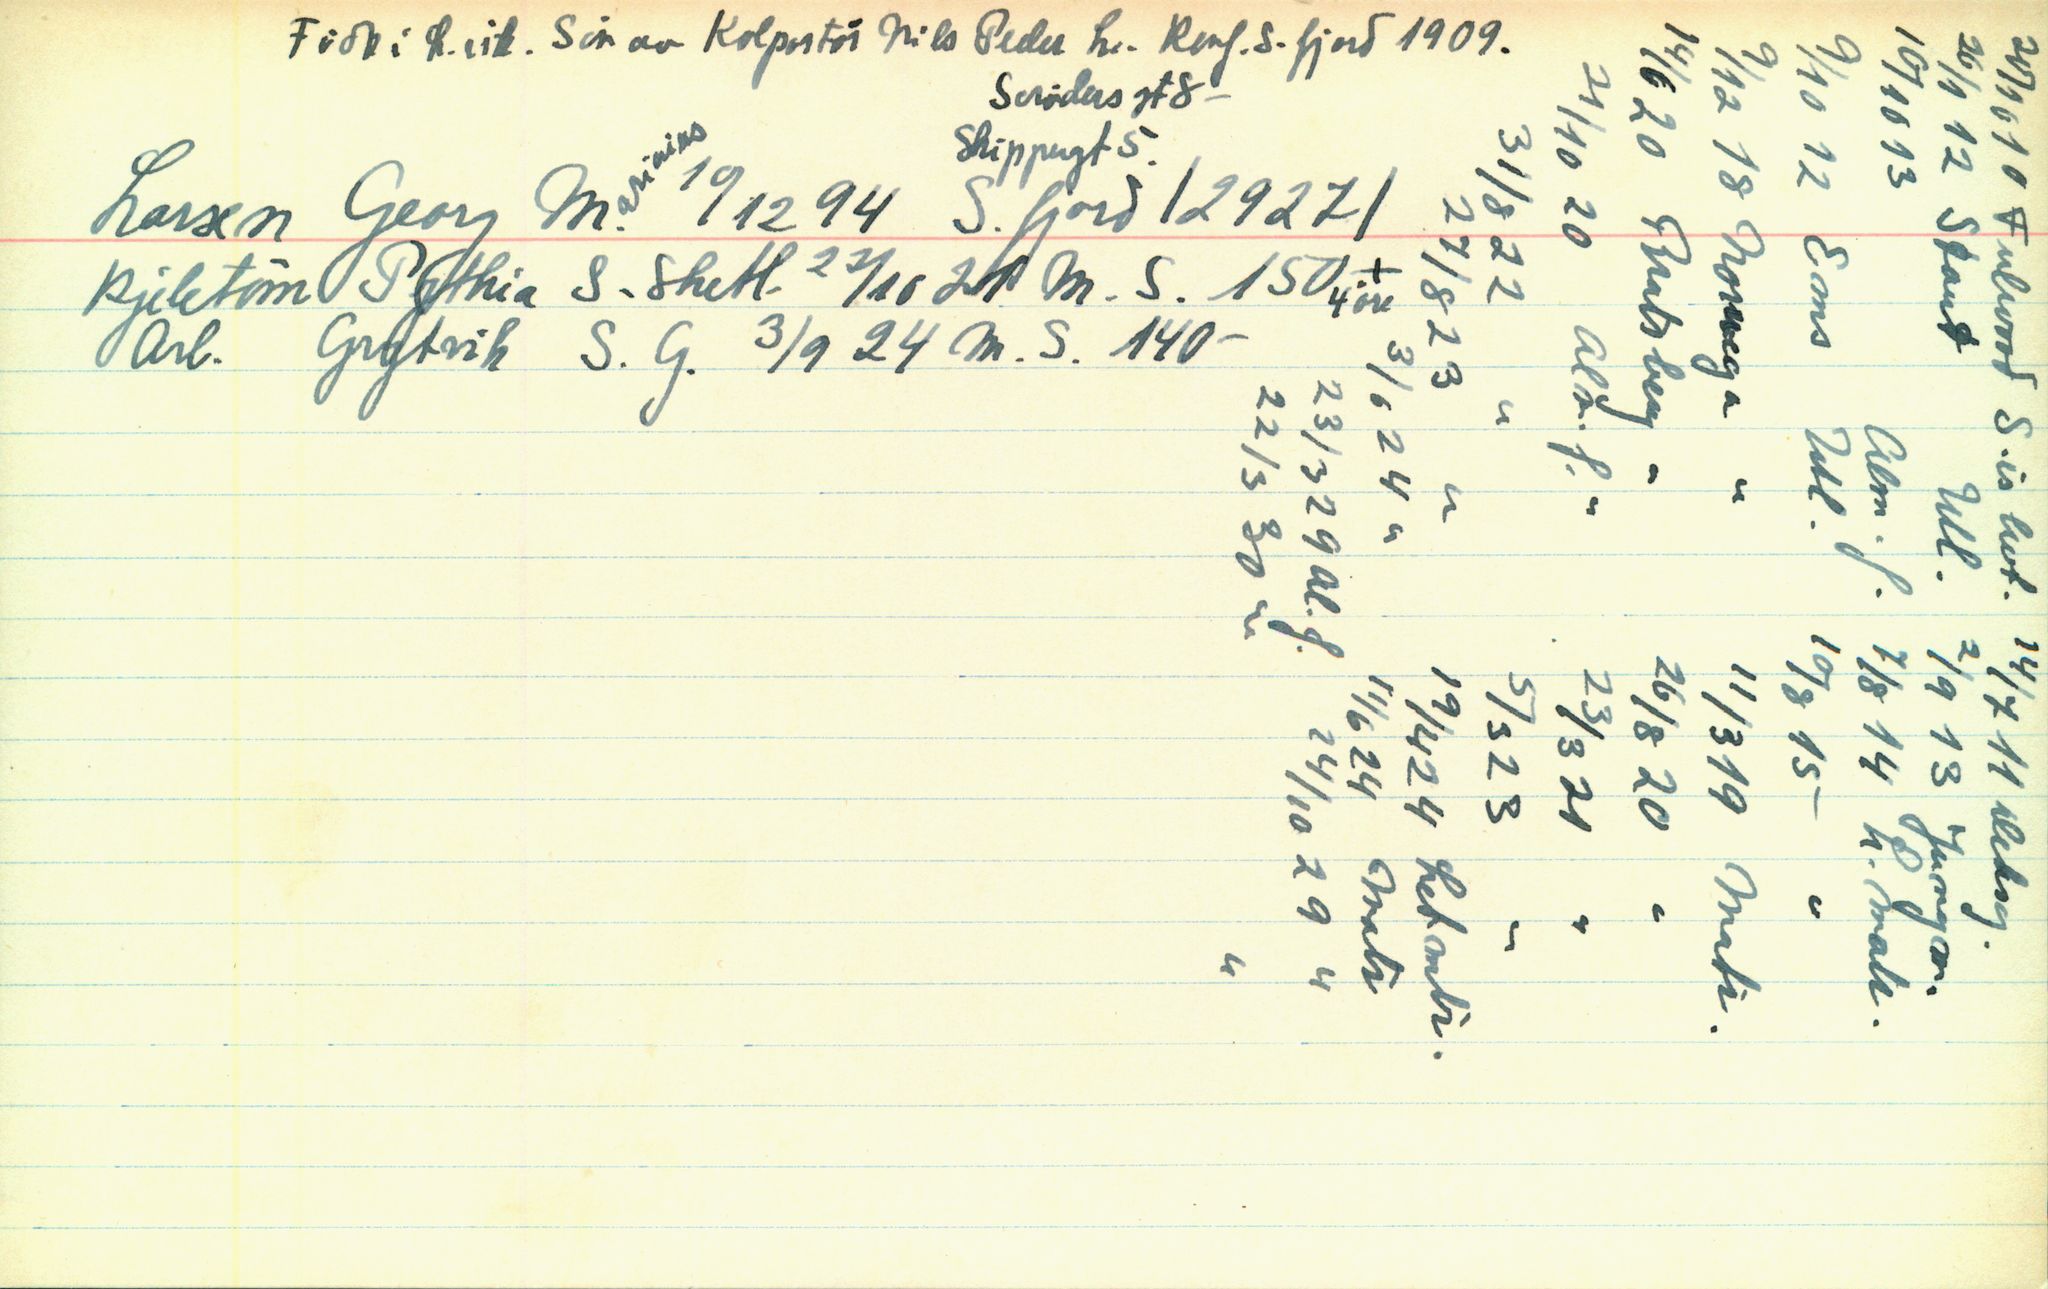 Född i K.vik. Sön av Kolportör Nils Peder L. Konf. S. fjord 1909.
Schröders gt 8-
Skippergt 5.
Larsen Georg M.arinius 19/12 94 S. fjord /2927/
Kjeletöm Pythia S. Shetl. 22/10 21 M. S. 150+
4 öre
Arb. Grytvik S. G. 3/9 24 M. S. 140-
24/10 10 Fulwood S. is hvt. 14/7 11 deksg.
26/1 12 Staut Utl. 2/9 13 Jungm.
10/10 13 Alm. f. 7/8 14 h. matr.
9/10 22 Ems Utl. 10/8 15- "
9/12 18 Norwega " 11/3 19 Matr.
14/6 20 Bratsberg " 26/8 20 "
21/10 20 Alm. f. " 23/3 21 "
31/8 22 " 5/3 23 "
27/8 23 " 19/4 24 Letmtr.
3/6 24 " 11/6 24 Matr
23/3 29 Al. f. 24/10 29 "
22/3 30 " "